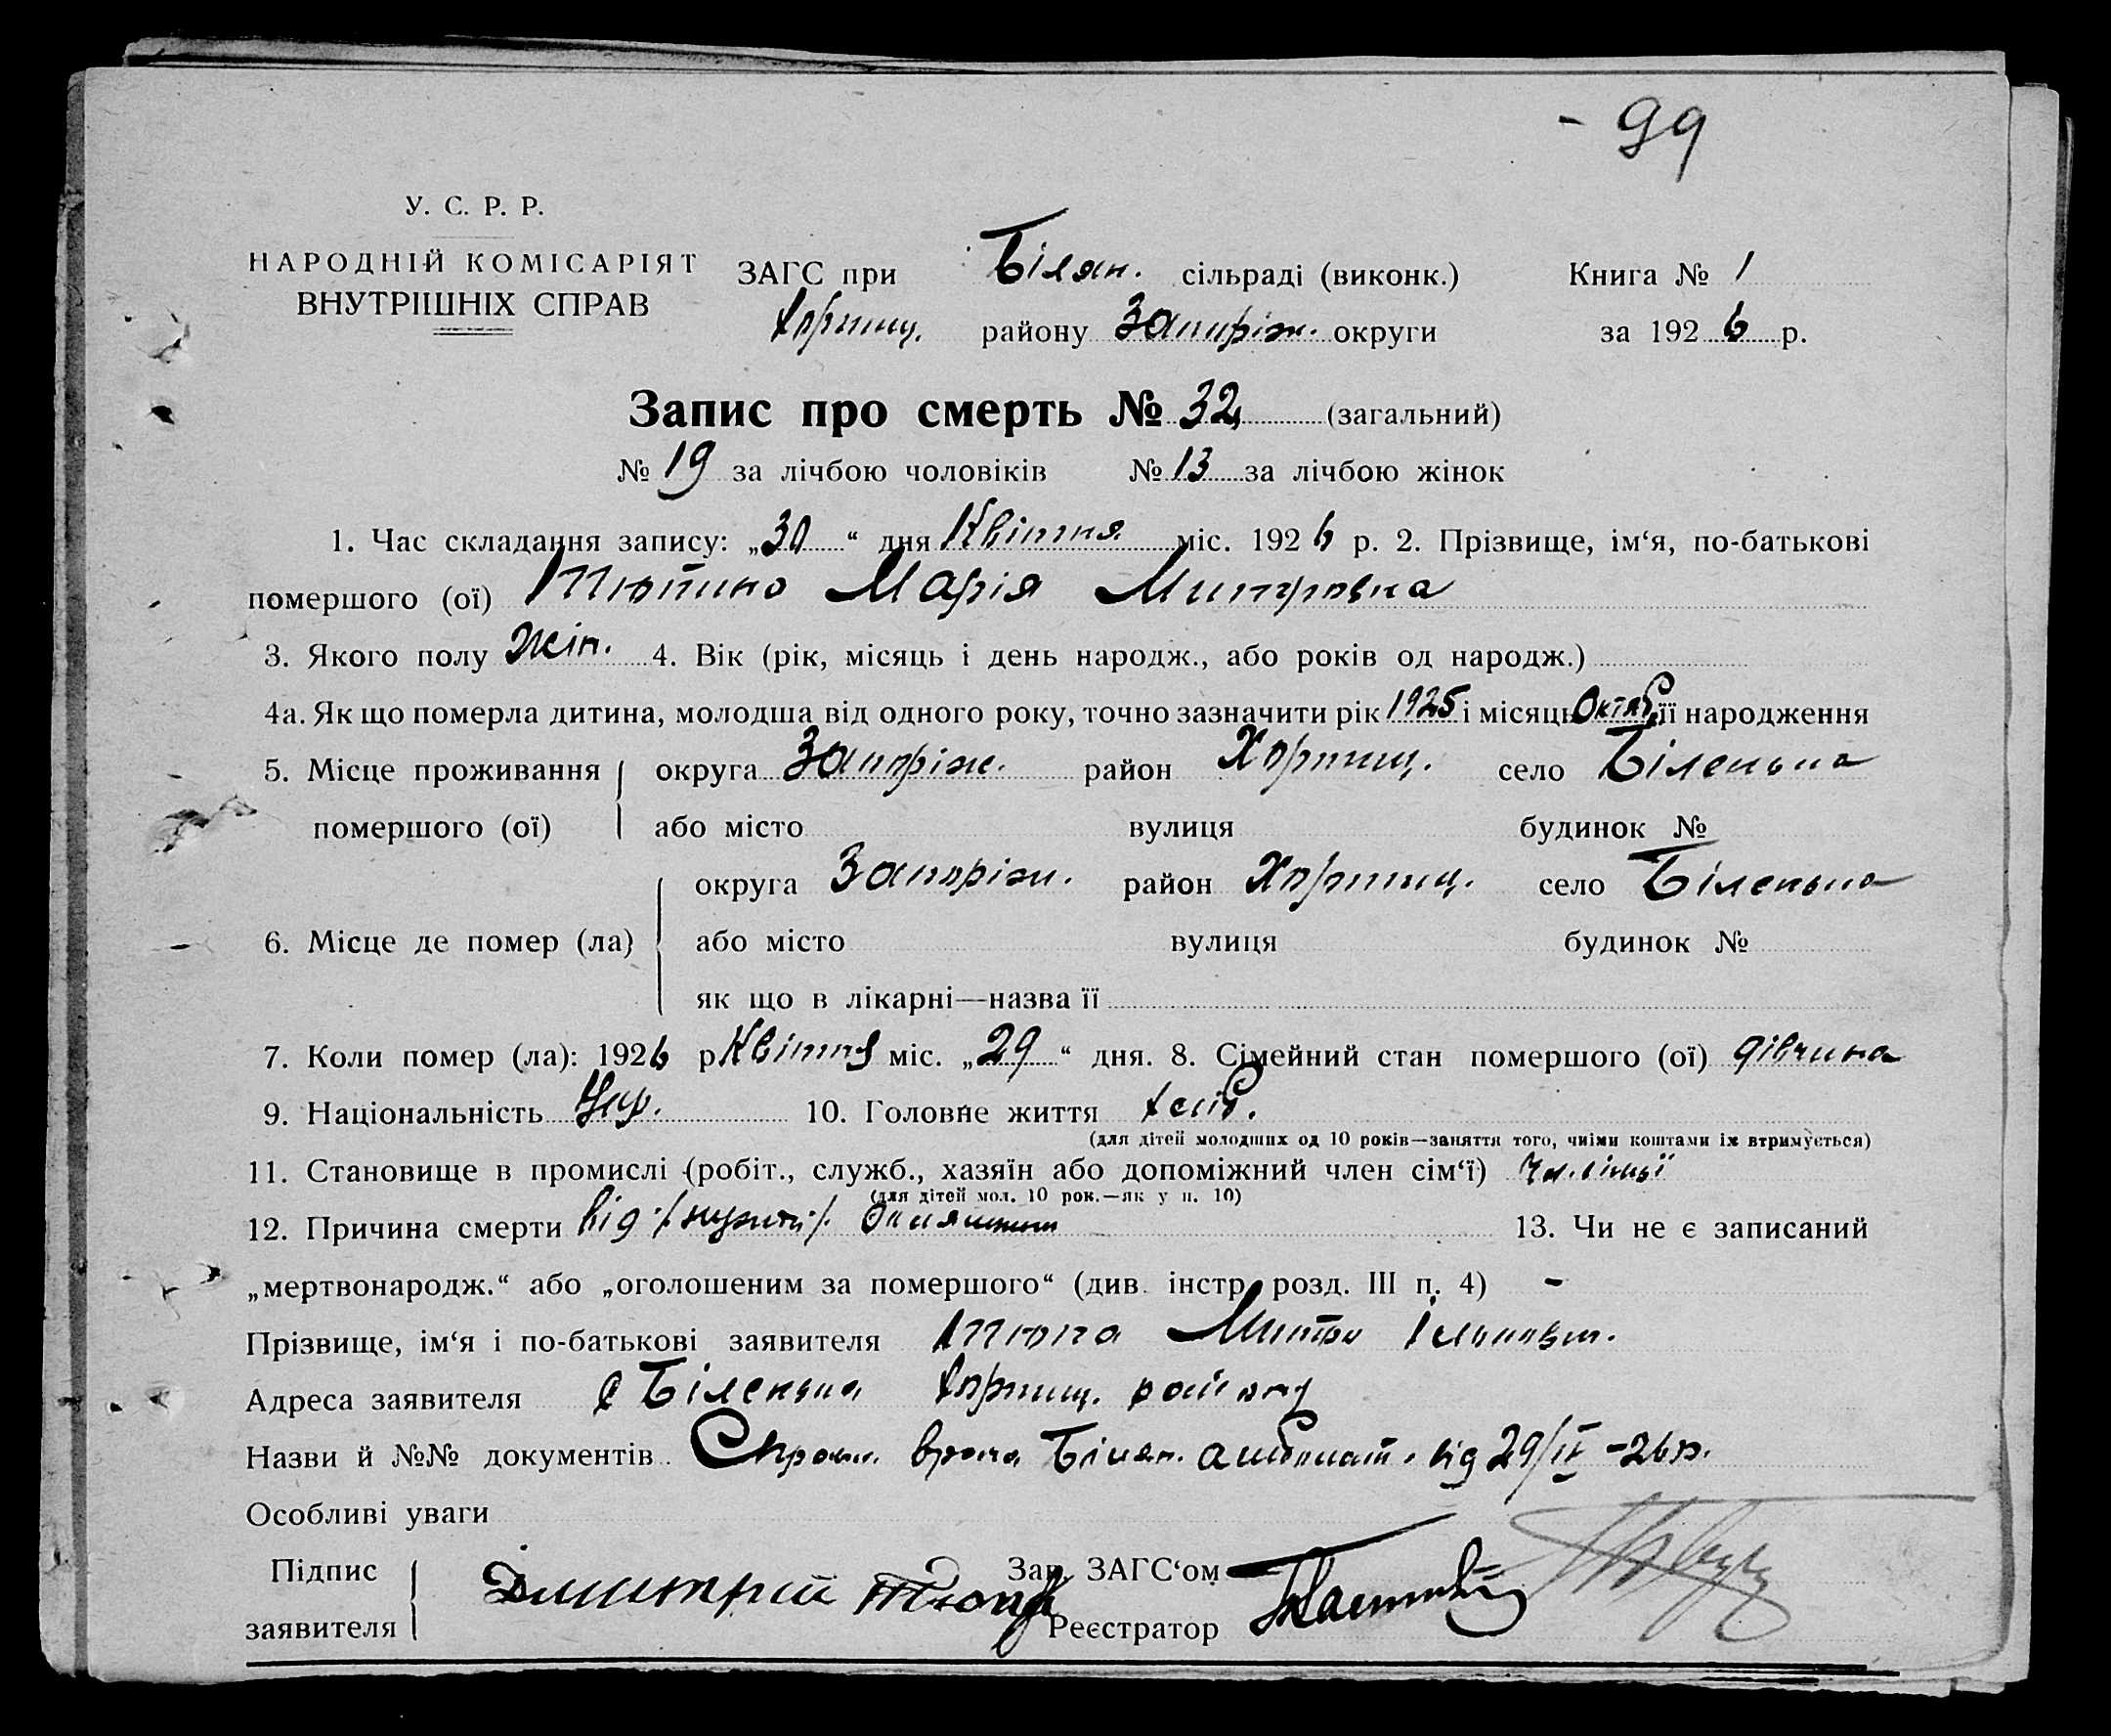 - 99
У. С. Р. Р.
НАРОДНІЙ КОМІСАРІЯТ
ВНУТРІШНІХ СПРАВ
ЗАГС при Білян. сільраді (виконк.)
Хортиц. району Запоріж. округи
Книга № 1
за 1926 р.
Запис про смерть № 32 (загальний)
№ 19 за лічбою чоловіків № 13 за лічбою жінок
1. Час складання запису: „30“ дня Квітня міс. 1926 р. 2. Прізвище, ім‘я, по-батькові
помершого (ої) Марія Митровна
3. Якого полу жін. 4. Вік (рік, місяць і день народж., або років од народж.)
4а. Як що померла дитина, молодша від одного року, точно зазначити рік 1925 і місяць Октяб її народження
5. Місце проживання округа Запоріж. район Хортиц. село Біленька
помершого (ої) або місто вулиця будинок №
округа Запоріж. район Хортиц. село Біленька
6. Місце де помер (ла) або місто вулиця будинок №
як що в лікарні—назва її
7. Коли помер (ла): 1926 р Квітня міс. „29“ дня. 8. Сімейний стан помершого (ої) дівчина
9. Національність Укр. 10. Головне життя хліб.
(для дітей молодших од 10 років—заняття того, чиїми коштами їх втримується)
11. Становище в промислі (робіт., служб., хазяїн або допоміжний член сім‘ї)
(для дітей мол. 10 рок.—як у п. 10)
12. Причина смерти від 13. Чи не є записаний
„мертвонародж.“ або „оголошеним за помершого“ (див. інстр. розд. III п. 4) -
Прізвище, ім‘я і по-батькові заявителя Тюпа Митро
Адреса заявителя с Біленька Хортиц. району
Назви й №№ документів Справк. врача Білян. амбулат. від 29/IV -26 р.
Особливі уваги
Підпис
заявителя
Дмитрий Тюпа
Зав. ЗАГС‘ом
Реєстратор